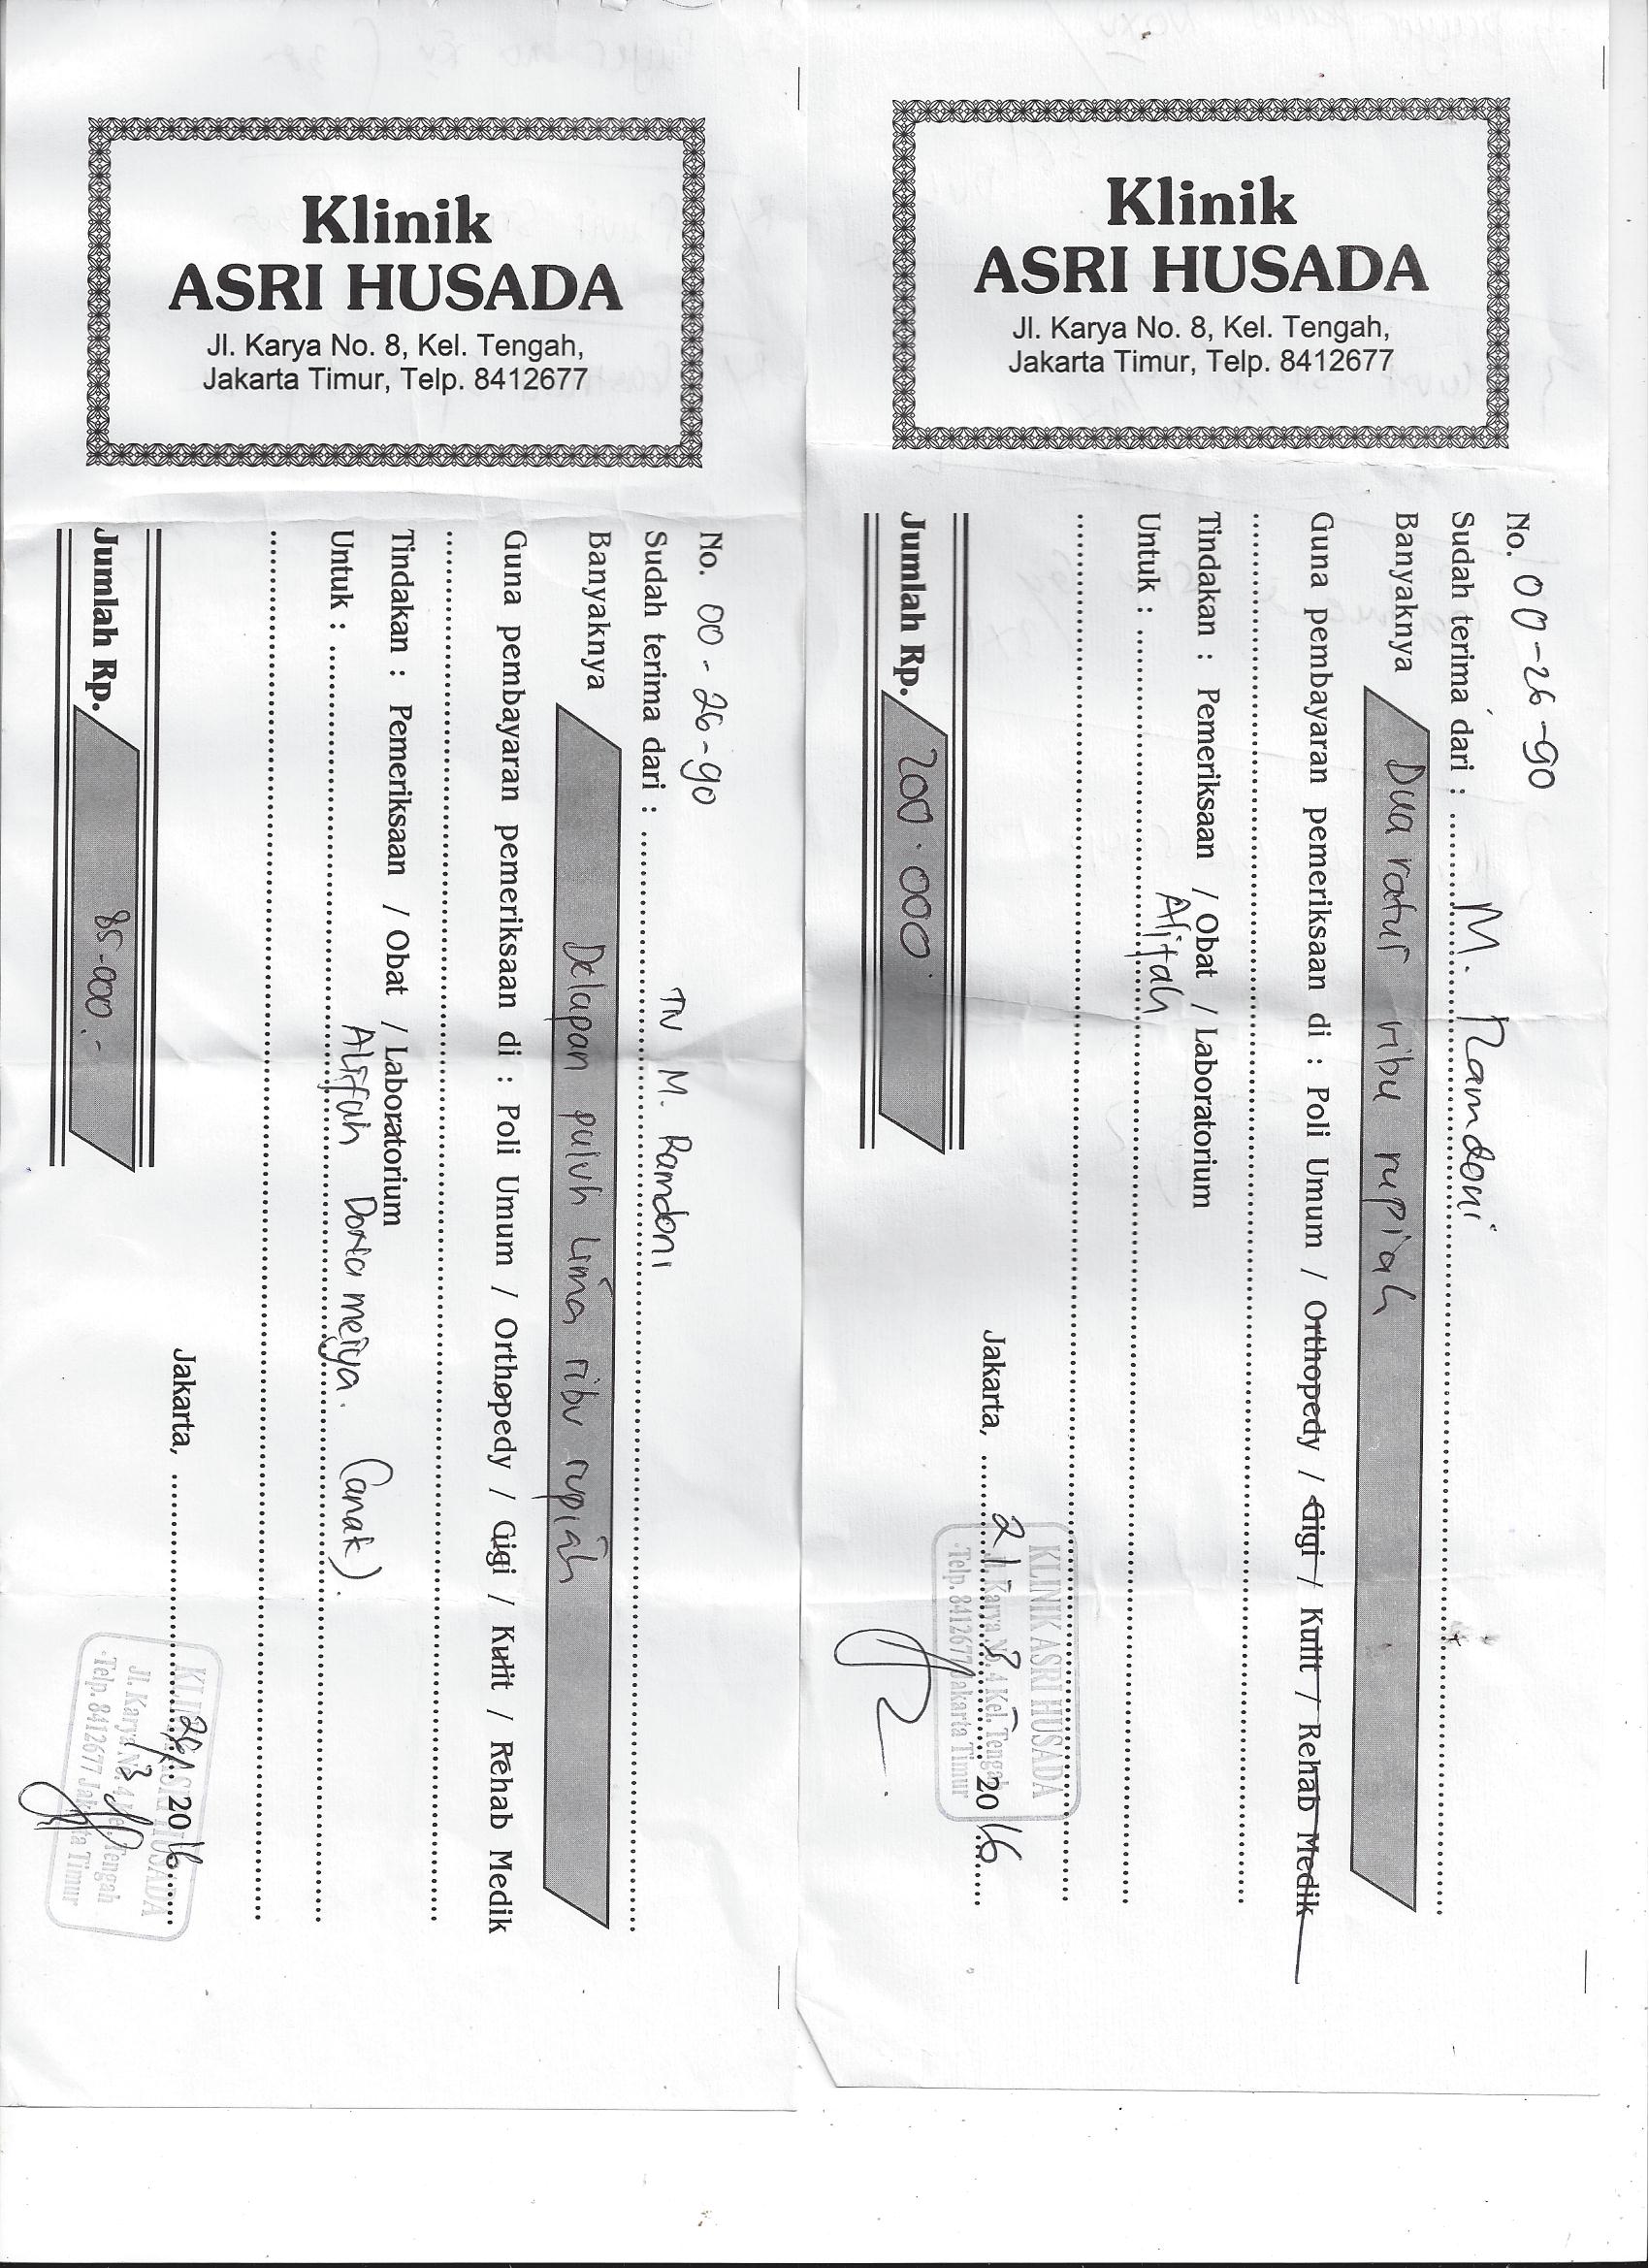 Klinik
ASRI HUSADA
Jl. Karya No. 8, Kel. Tengah,
Jakarta Timur, Telp. 8412677
No. 00 - 26 - 90
Sudah terima dari : TN M. Ramdoni
Banyaknya Delapan puluh Lima ribu rupiah
Guna pembayaran pemeriksaan di : Poli Umum / Orthopedy / Gigi / Kulit / Rehab Medik
Tindakan : Pemeriksaan / Obat / Laboratorium
Untuk : ALifah Dorameiya. (anak).
Jumlah Rp. 85.000.-
Jakarta, 2016
KLINIK ASRI HUSADA
Jl. Karya No. 4 Kel. Tengah
Telp. 8412677 Jakarta Timur
Klinik
ASRI HUSADA
Jl. Karya No. 8, Kel. Tengah,
Jakarta Timur, Telp. 8412677
No. 00 - 26 - 90
Sudah terima dari : M. Ramdoni
Banyaknya Dua ratus ribu rupiah
Guna pembayaran pemeriksaan di : Poli Umum / Orthopedy / Gigi / Kulit / Rehab Medik
Tindakan : Pemeriksaan / Obat / Laboratorium
Untuk : Alifah
Jumlah Rp. 200.000.
Jakarta, 21 - 3 - 2016
KLINIK ASRI HUSADA
Jl. Karya No. 4 Kel. Tengah
Telp. 8412677 Jakarta Timur